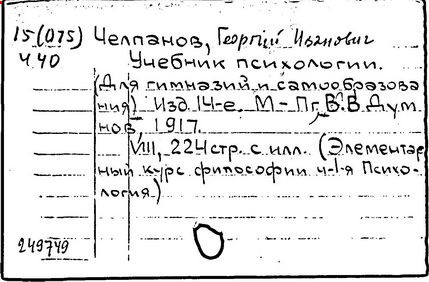 15(075) Челпанов, Георгий Иванович
Ч40 Учебник психологии.
(Для гимназий и самообразова
ния) Изд. 14-е. М-Пг, В.В.Дум
нов, 1917.
VIII, 224 стр. с илл. (Элементар
ный курс философии ч-I-я Психо-
логия)
249749